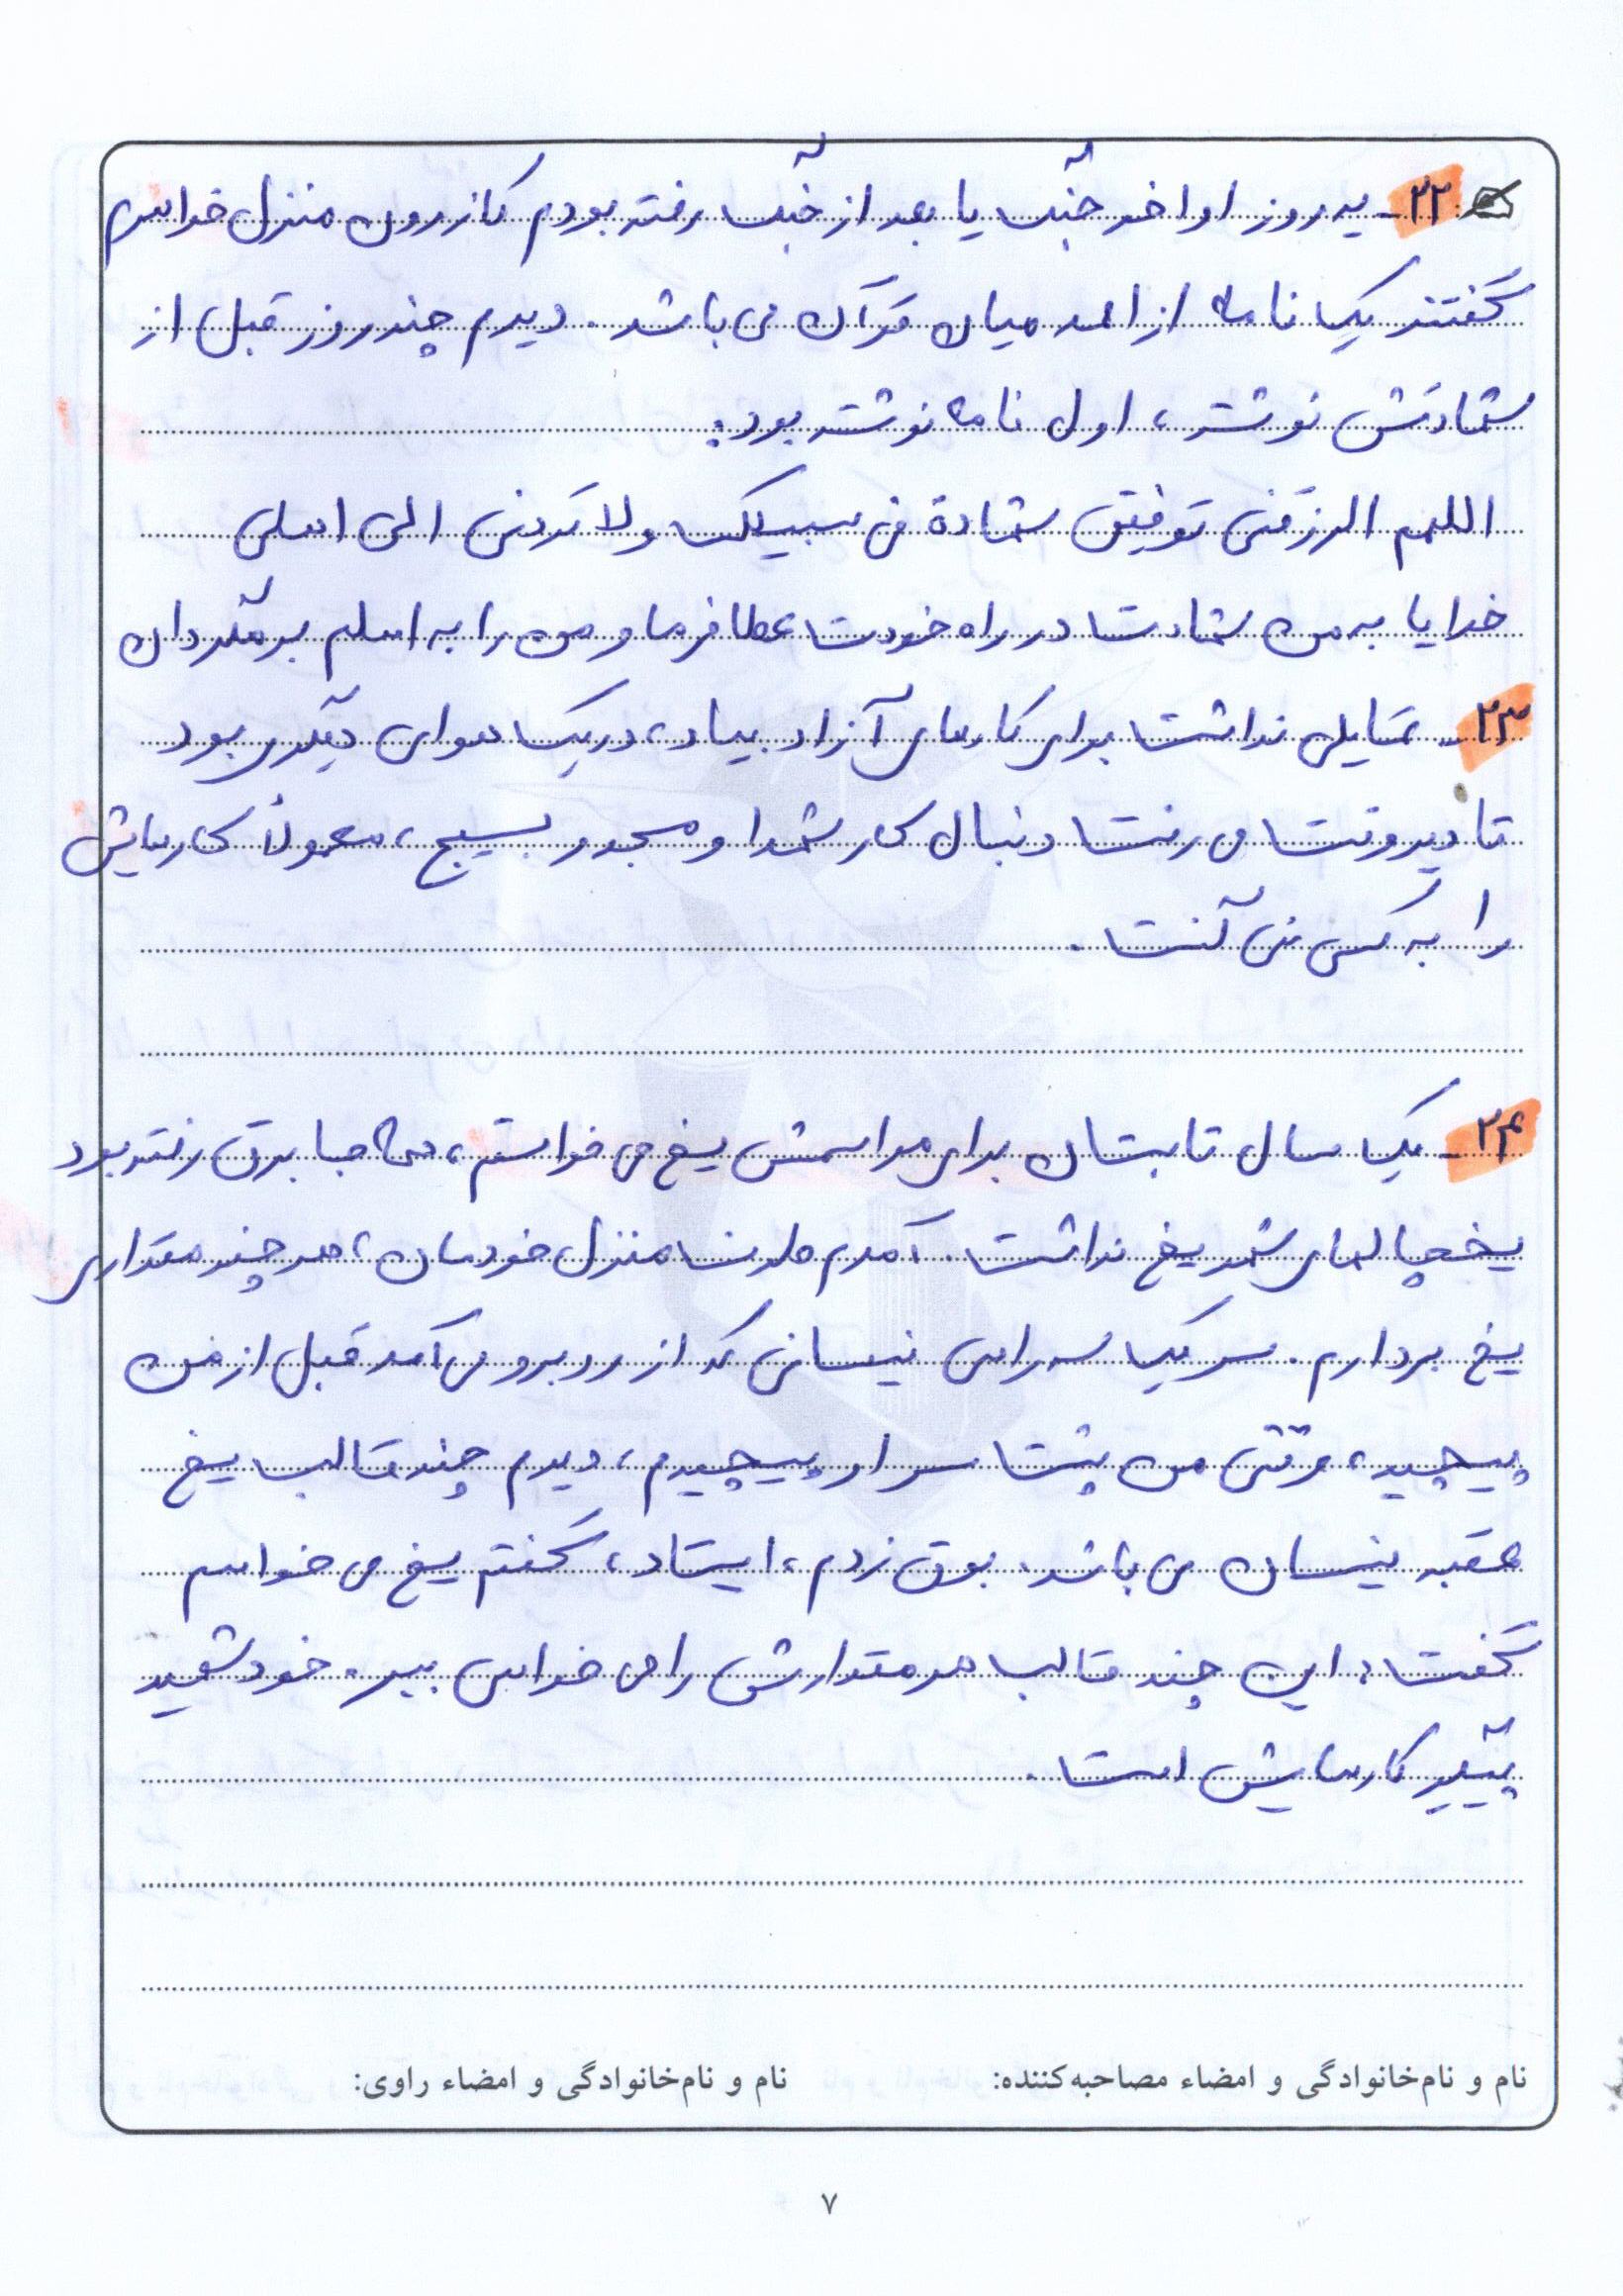 ۲۲- یه روز اواخر جنگ یا بعد از جنگ رفته بودم کازرون منزل خواهرم
گفتند یک نامه از احمد میان قرآن می باشد. دیدم چند روز قبل از
شهادتش نوشته، اول نامه نوشته بود:
اللهم الرزقنی توفیق شهادة فی سبیلک ولا تردنی الی اهلی
خدایا به من شهادت در راه خودت عطا فرما و من را به اهلم برمگردان
۲۳- تمایلی نداشت برای کارهای آزاد بیاد، در یک هوای دیگری بود
تا دیروقت می رفت دنبال کار شهدا و مسجد و بسیج، معمولاً کارهایش
را به کسی نمی گفت.
۲۴- یک سال تابستان برای مراسمش یخ می خواستم، همه جا برق رفته بود
یخچالهای شهر یخ نداشت. آمدم طرف منزل خودمان، هر چند مقداری
یخ بردارم. سر یک سه راهی نیسانی که از روبرو می آمد قبل از من
پیچید، وقتی من پشت سر او پیچیدم، دیدم چند قالب یخ
عقبه نیسان می باشد. بوق زدم، ایستاد، گفتم یخ می خواهم
گفت: این چند قالب هر مقدارش را می خواهی ببر. خود شهید
پیگیر کارهایش است.
نام و نام‌خانوادگی و امضاء مصاحبه‌کننده: نام و نام‌خانوادگی و امضاء راوی:
۷